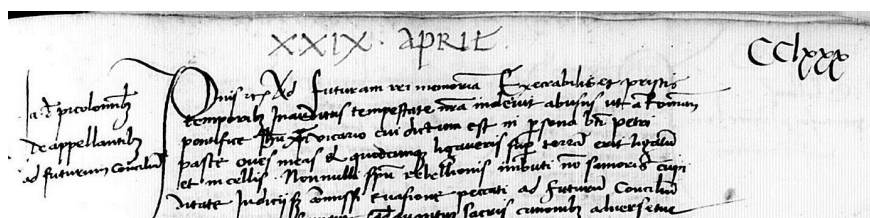 XXIX · APRIL
CClxxx
Ia d picolominib
de appellantib
ad futurum Conciliũ
Pius &c Ad futuram rei memoriã Execrabilis et pristis
temporib Inauditus tempestate nrã inoleuit abusus ut a Romano
pontifice vicario cui dictum est in persona bti petri
pasce oues meas & quodcunq ligaueris sup terrã erit ligatũ
et in cellis. Nonnulli spũ rebellionis imbuti nõ sanioris cupi
ditate Iudicij s comissi euasione peccati ad futurũ Conciliũ
sacris canonib aduersetur